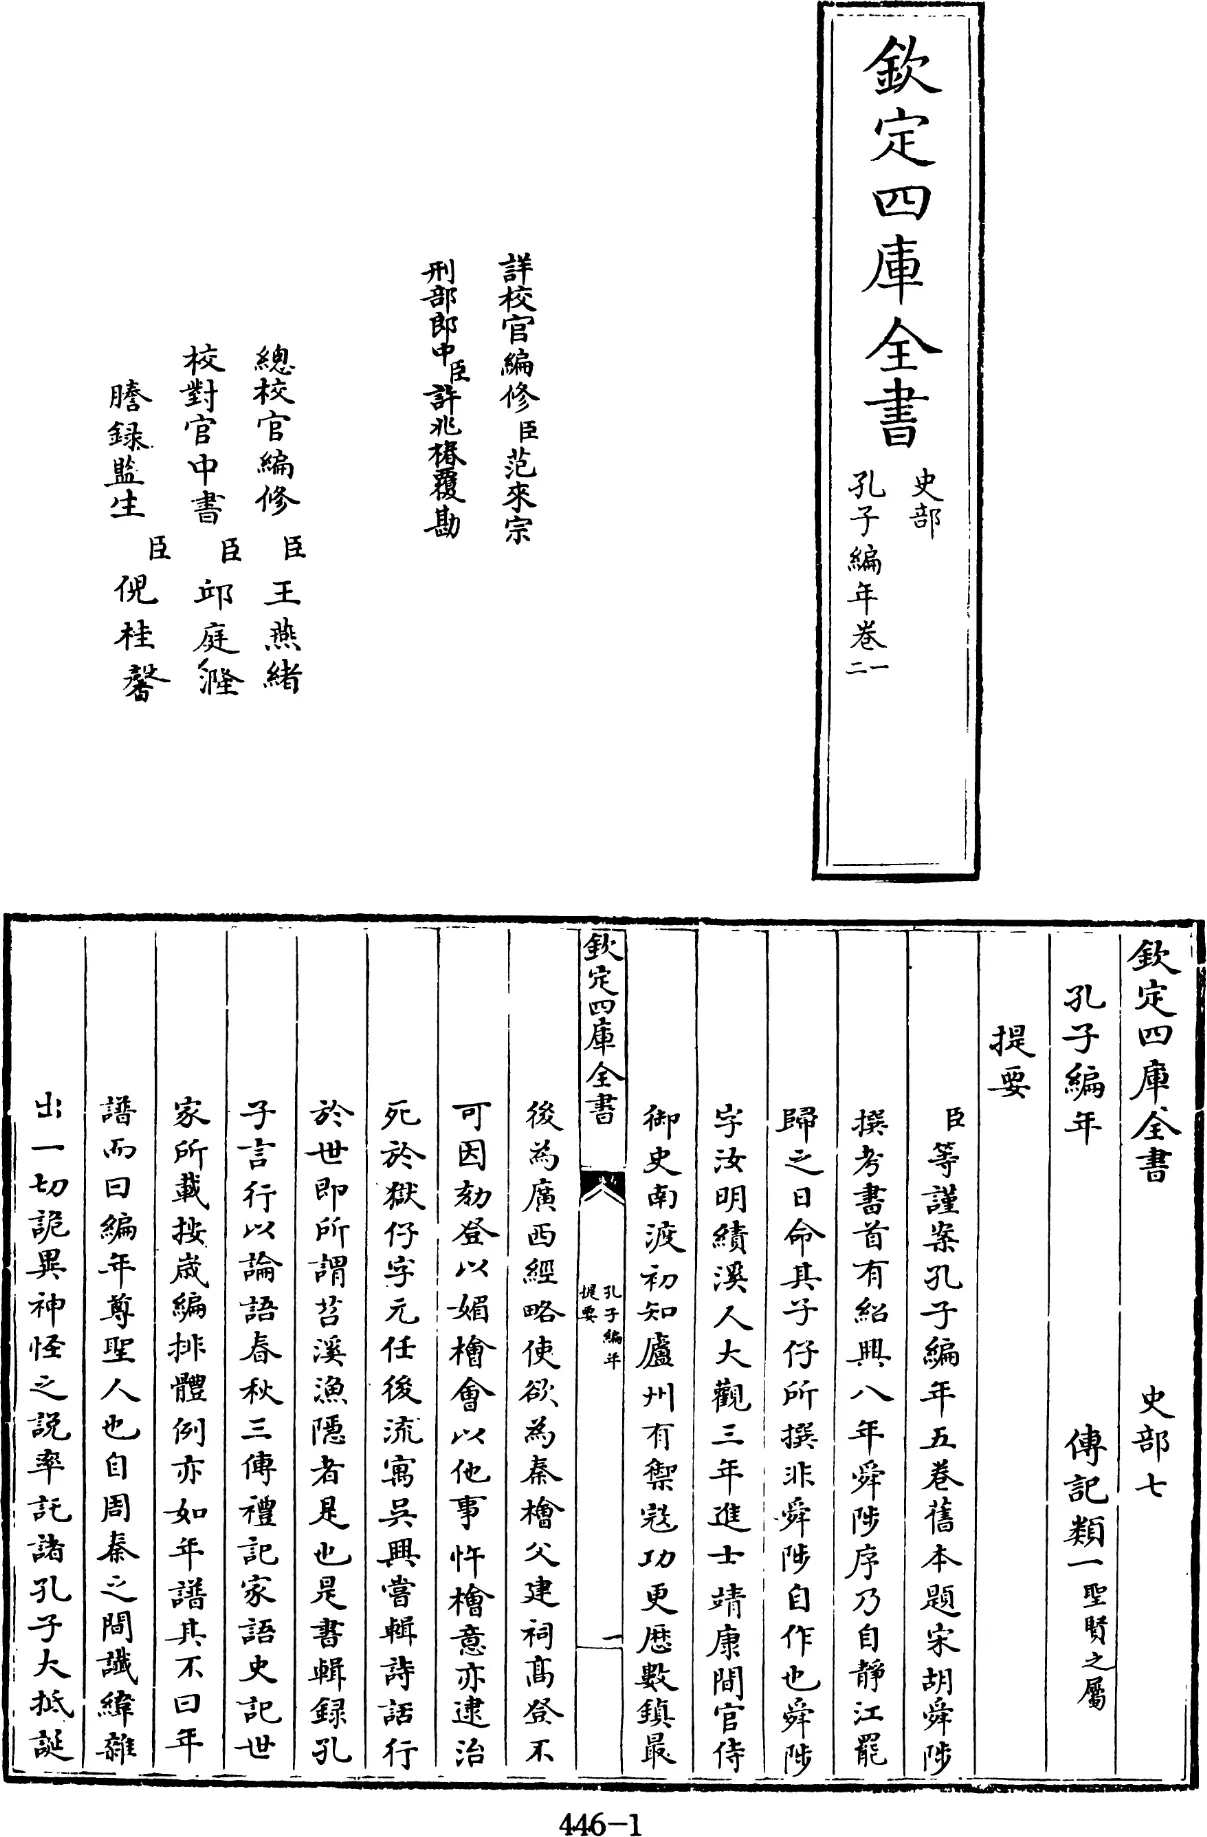 欽定四庫全書
史部
孔子編年卷一
二
詳校官編修臣范來宗
刑部郎中臣許兆椿覆勘
總校官編修臣王燕緒
校對官中書臣邱庭漋
謄錄監生臣倪桂馨
欽定四庫全書 史部七
孔子編年 傳記類一聖賢之屬
提要
臣等謹案孔子編年五巻舊本題宋胡舜陟
撰考書首有紹興八年舜陟序乃自靜江罷
歸之日命其子仔所撰非舜陟自作也舜陟
字汝明績溪人大觀三年進士靖康間官侍
御史南渡初知廬州有禦冦功更歴數鎮最
欽定四庫全書
孔子編年
提要
一
後為廣西經略使欲為秦檜父建祠髙登不
可因劾登以媚檜㑹以他事忤檜意亦逮治
死於獄仔字元任後流寓吳興嘗輯詩話行
於世即所謂苕溪漁隱者是也是書輯録孔
子言行以論語春秋三傳禮記家語史記世
家所載按歳編排體例亦如年譜其不曰年
譜而曰編年尊聖人也自周秦之間讖緯雜
出一切詭異神怪之説率託諸孔子大抵誕
446-1